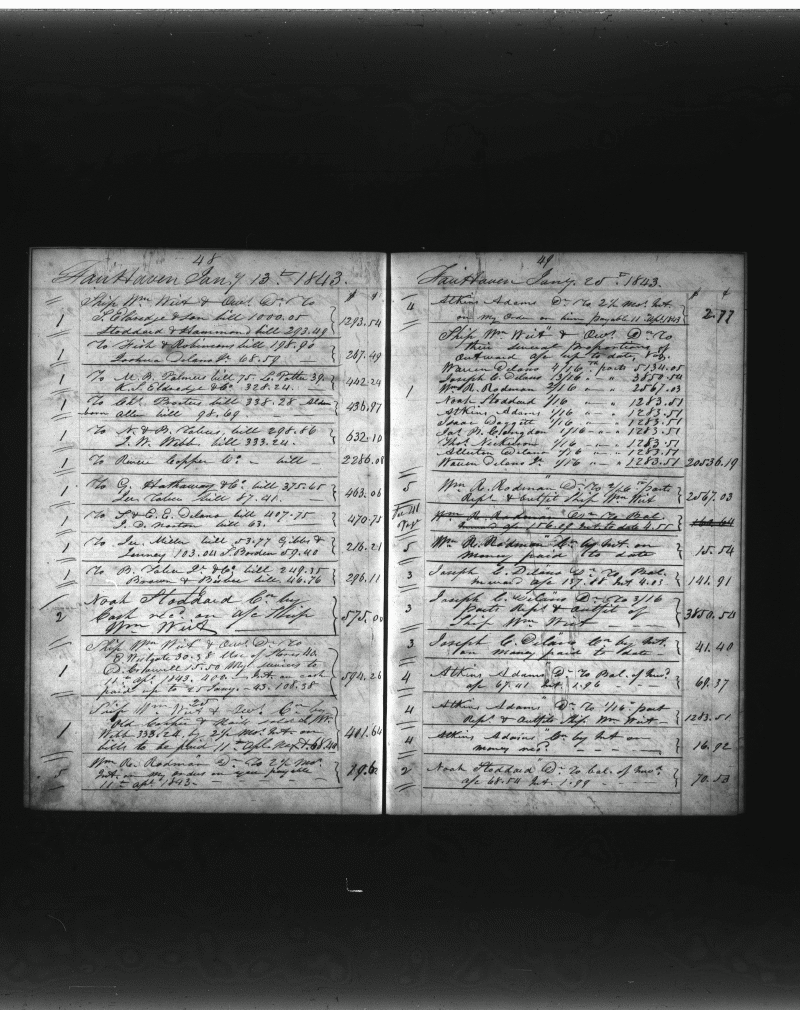 48
FairHaven Jany 13th 1843.
Ship Wm Wirt & Own. Dr To
1 S. Eldredge & Son bill 1000.05
Stoddard & Hammond bill 293.49 1293.54
1 To Fish & Robinsons bill 198.90
Joshua Delano Jr 68.59 267.49
1 To M. B. Palmers bill 75. L. Potter 39.
& Co. 328.24. 442.24
1 To bill 338.28
Allen bill 98.69 436.97
1 To N. & B. Tabers bill 298.86
J. W. Webb bill 333.24. 632.10
1 To Revere Copper Co. bill 2286.08
1 To G. Hathaway & Co. bill 375.65
Taber bill 87.41. 463.06
1 To bill 407.75
J. D. Norton bill 63. 470.75
1 To bill 53.77 Gibbs &
Jenney 103.04 S. Borden 59.40 216.21
1 To B. Taber Jr & Co. bill 249.35
Brown & bill 46.76 296.11
2 Noah Stoddard Cr by
Cash on a/c Ship
Wm Wirt 575.00
1 Ship Wm Wirt & Own. Dr To
30.38 Use of Stores 40.
15.50 My services to
11th apl. 1843. 400. Int. on cash
paid up to 25 Jany. 43. 108.38 594.26
1 Ship Wm Wirt & Own. Cr by
Old Copper & Nails sold J. W.
Webb 333.24 by 2/2 Mos. Int. on
bills to be paid 11th Apl. next 68.40 401.64
5 Wm R. Rodman Dr To 2/2 Mos.
Int. on my orders on payable
11th apl 1843. 39.62
49
FairHaven Jany. 25th 1843.
4 Atkins Adams Dr To 2/2 Mos. Int.
on my Order on him payable 11 Apl. 1843 2.77
Ship Wm Wirt & Own. Dr To
their several proportions of
Outward a/c up to date, Viz.
Warren Delano 4/16 parts 5134.05
Joseph C. Delano 3/16 " " 3850.54
1 Wm R. Rodman 2/16 " " 2567.03
Noah Stoddard 1/16 " " 1283.51
Atkins Adams 1/16 " " 1283.51
Isaac Daggett 1/16 " " 1283.51
Congdon 1/16 " " 1283.51
Thos. Nickelson 1/16 " " 1283.51
Allerton Delano 1/16 " " 1283.51
Warren Delano Jr 1/16 " " 1283.51 20536.19
5 Wm R. Rodman Dr To 2/16 parts
Repr. & Outfit Ship Wm Wirt 2567.03
Wm R. Rodman Cr To Bal.
a/c 156.09 Int. to date 4.55 160.64
5 Wm R. Rodman Cr by Int. on
money paid to date 15.54
3 Joseph C. Delano Dr To Bal.
a/c 137.88 Int 4.03 141.91
3 Joseph C. Delano Dr To 3/16
parts Repr. & Outfit of
Ship Wm Wirt 3850.54
3 Joseph C. Delano Cr by Int.
on money paid to date 41.40
4 Atkins Adams Dr To Bal. of
a/c 67.41 Int. 1.96 69.37
4 Atkins Adams Dr To 1/16 part
Repr. & Outfits Ship Wm Wirt 1283.51
4 Atkins Adams Cr by Int. on
money 16.92
2 Noah Stoddard Dr To bal. of
a/c 68.54 Int. 1.99 70.53